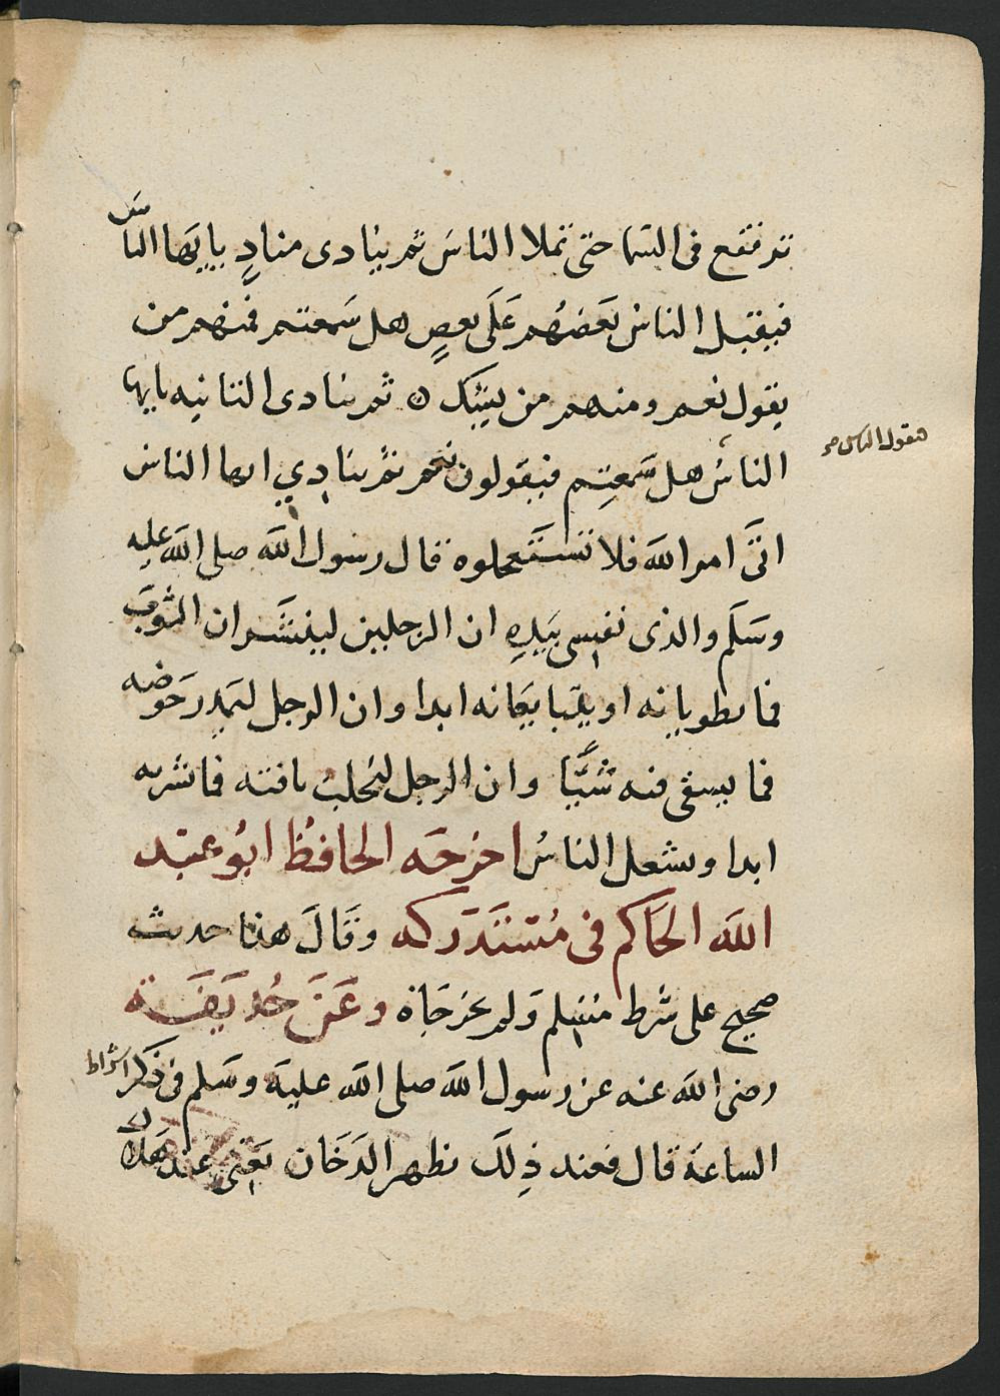 ترفتقع فى السما حتى تملا الناس ثم ينادى منادٍ يايها الناس
فيقبل الناس بعضهم على بعضٍ هل سمعتم فمنهم من
يقول نعم ومنهم من يشك ه ثم ينادى الثانيه يايها
الناسُ هل سمعتم فيقولون نعم ثم ينادي ايها الناس
فيقول الناس
اتَى امر الله فلا تستعجلوه قال رسول الله صلى الله عليه
وسَلم والذى نفسى بيدهِ ان الرجلين لينشران الثوب
فما يطويانه او يتبايعانه ابدا وان الرجل ليمدر حوضه
فما يسقى فيه شيًا وان الرجل ليحلب ناقته فما شربه
ابدا ويشغل الناسُ اخرجَه الحافظُ ابُو عبد
الله الحَاكم فى مُستَدرَكه وقَالَ هذا حديث
صحيح على شرط مسلم وَلم يخرجَاه وعَنَ حُذيفَة
رضى الله عنه عن رسول الله صلى الله عليه وسَلم فى ذكر اشراط
الساعة قال فعند ذلَك يظهر الدخَان يَعنى عند هَلاك